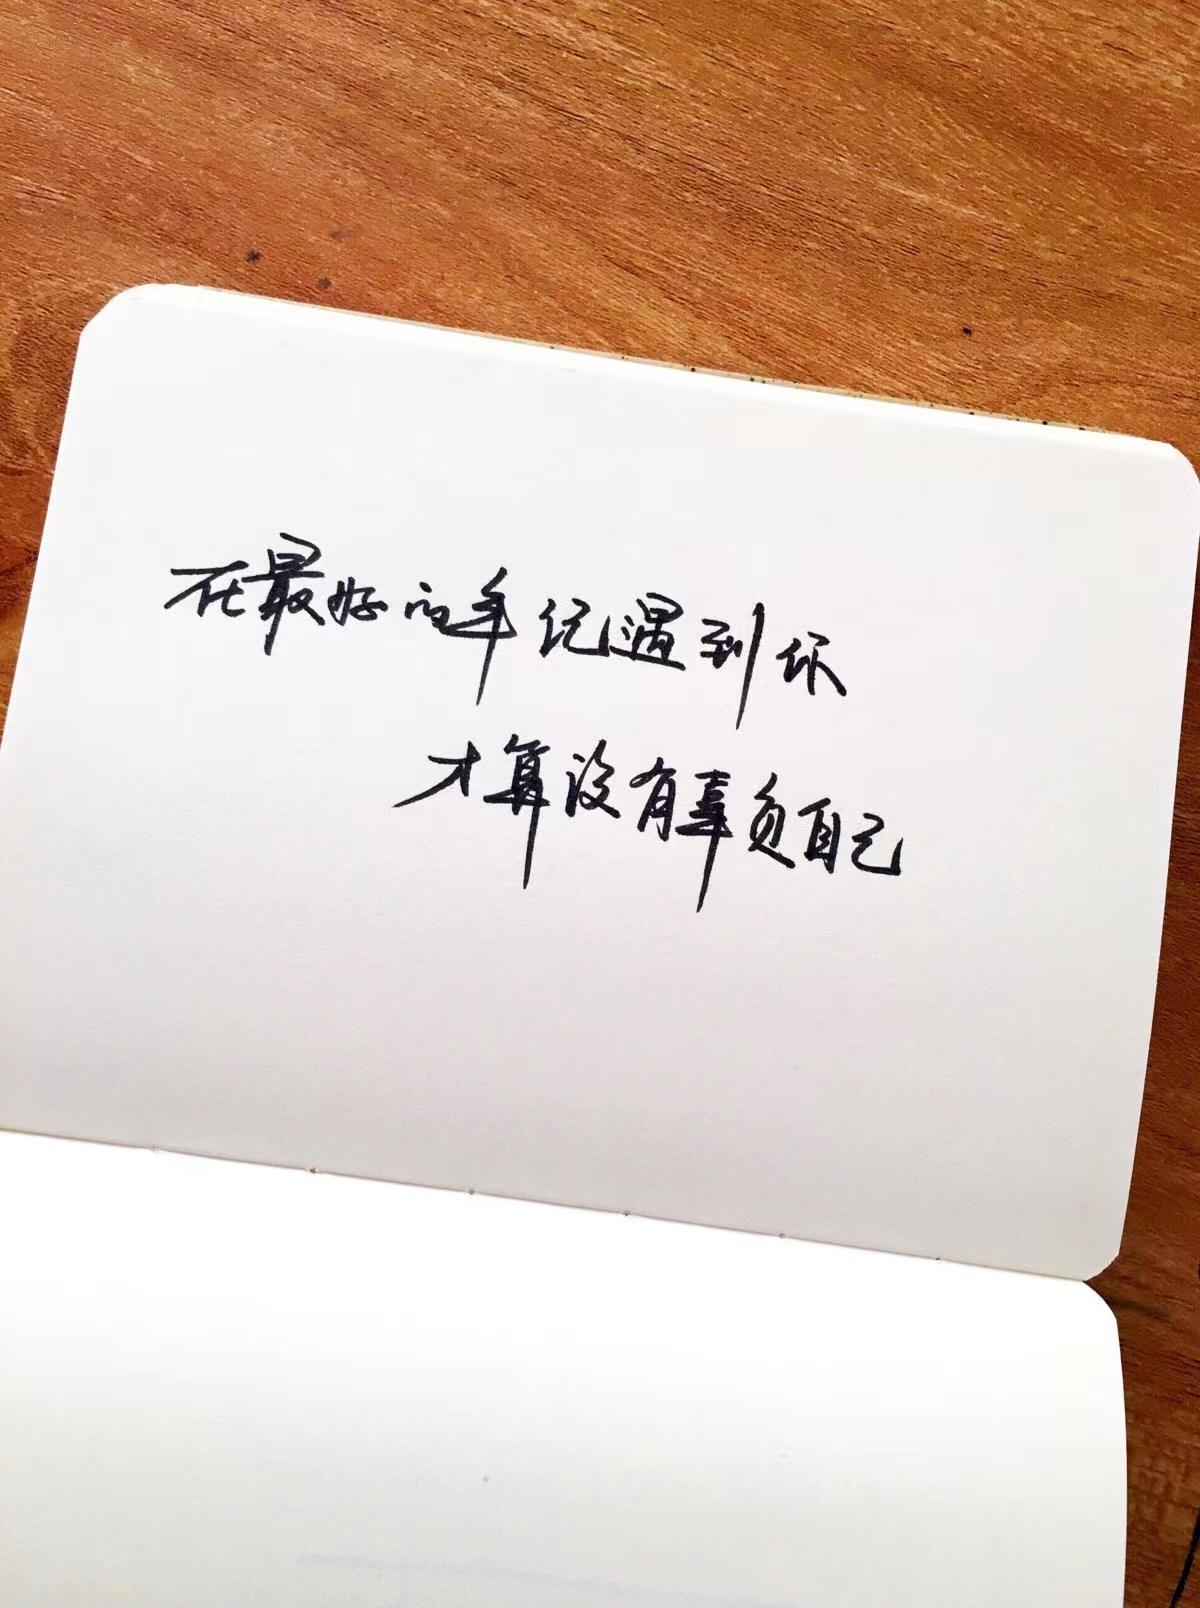 在最好的年纪遇到你
才算没有辜负自己